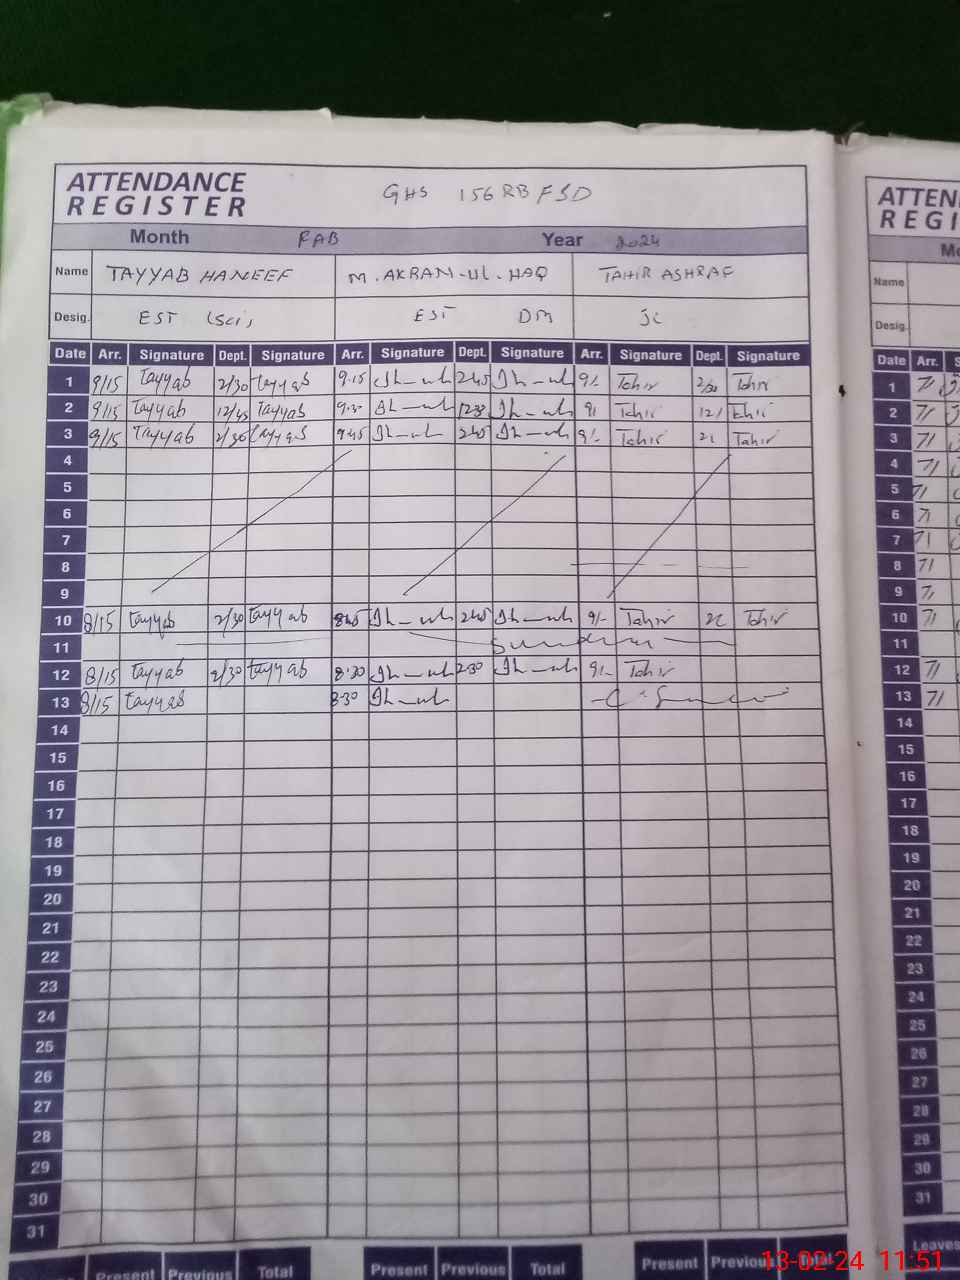 ATTENDANCE
REGISTER
GHS 156 RB FSD
Month FAB Year 2024
Name TAYYAB HANEEF M. AKRAN-UL-HAQ TAHIR ASHRAF
Desig. EST (Sci) EST DM JC
Date Arr. Signature Dept. Signature Arr. Signature Dept. Signature Arr. Signature Dept. Signature
1 9/15 Tayyab 2/30 Tayyab 9.15 2.45 9/- Tahir 2/30 Tahir
2 9/15 Tayyab 12/45 Tayyab 9.30 12.30 9/ Tahir 12/ Tahir
3 9/15 Tayyab 2/30 Tayyab 9.45 2.45 9/- Tahir 2/ Tahir
4
5
6
7
8
9
10 8/15 Tayyab 2/30 Tayyab 8.45 2.45 9/- Tahir 2/ Tahir
11 Sunday
12 8/15 Tayyab 2/30 Tayyab 8.30 2.30 9/- Tahir
13 8/15 Tayyab 8.30
14
15
16
17
18
19
20
21
22
23
24
25
26
27
28
29
30
31
Present Previous Total Present Previous Total Present Previous
ATTEN
REGI
Mo
Name
Desig.
Date Arr. S
1 7/
2 7/
3 7/
4 7/
5 7/
6 7/
7 7/
8 7/
9 7/
10 7/
11
12 7/
13 7/
14
15
16
17
18
19
20
21
22
23
24
25
26
27
28
29
30
31
Leaves
13-02-24 11:51